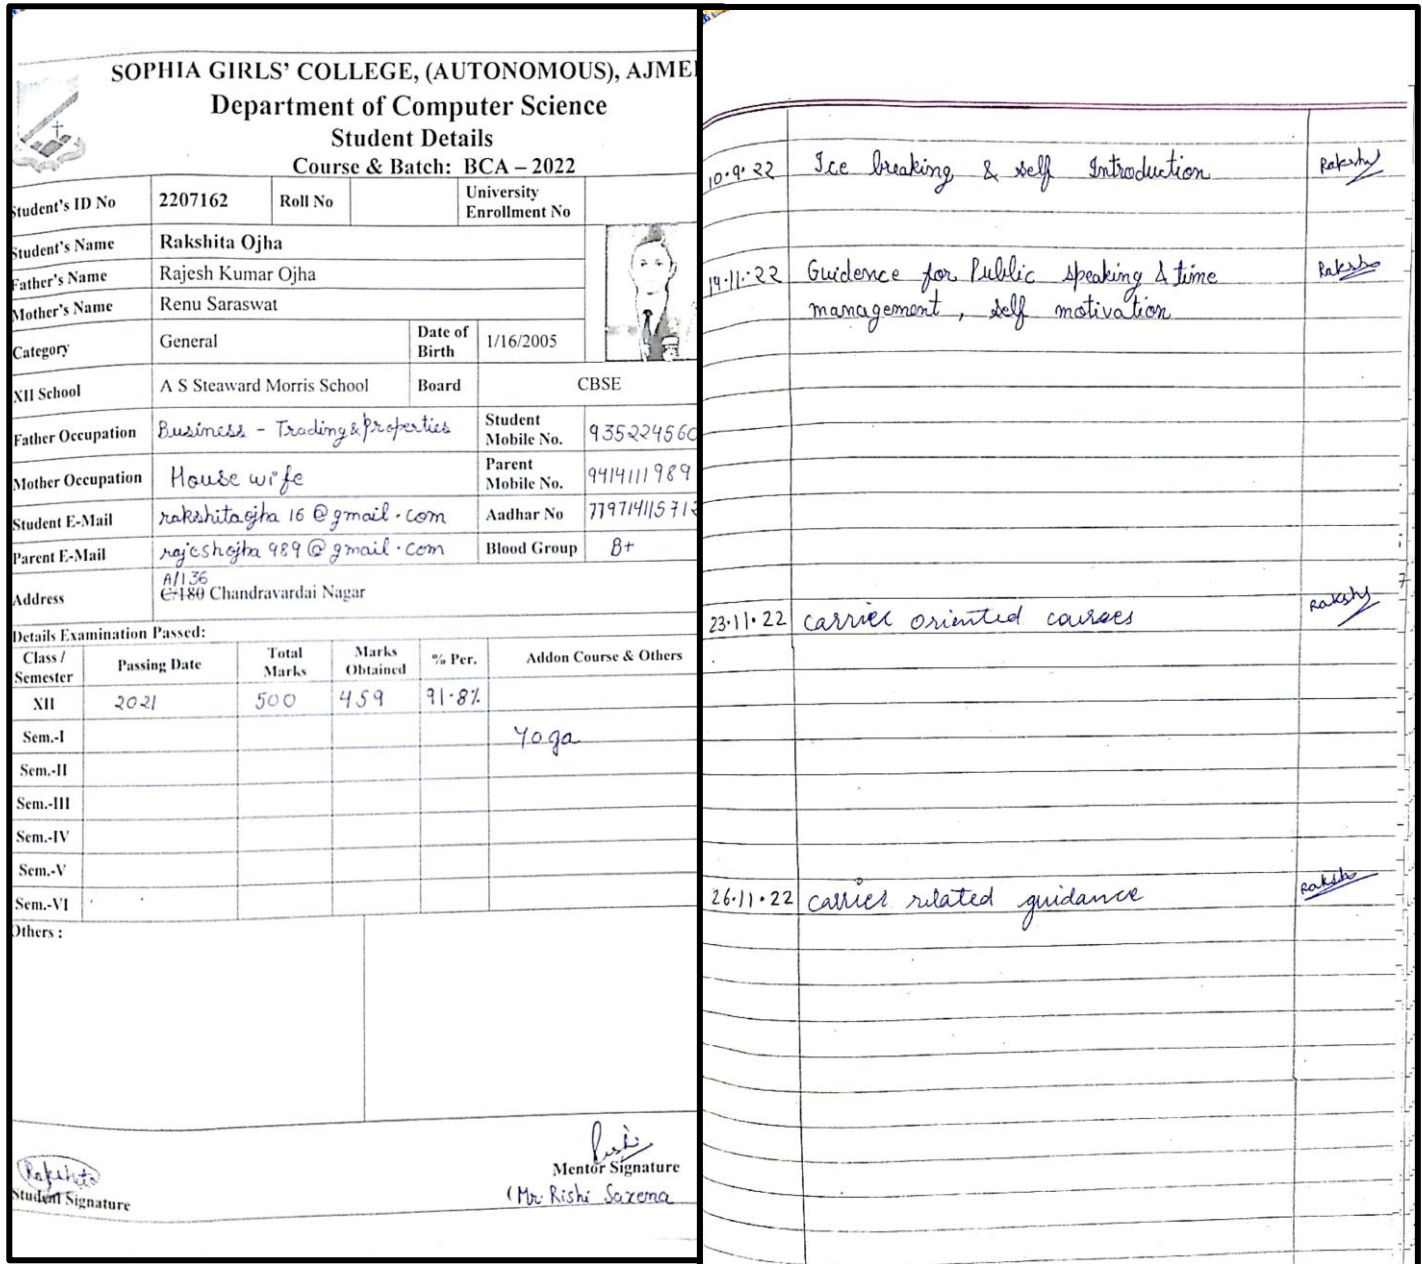 SOPHIA GIRLS' COLLEGE, (AUTONOMOUS), AJME
Department of Computer Science
Student Details
Course & Batch: BCA – 2022
Student's ID No 2207162 Roll No University Enrollment No
Student's Name Rakshita Ojha
Father's Name Rajesh Kumar Ojha
Mother's Name Renu Saraswat
Category General Date of Birth 1/16/2005
XII School A S Steaward Morris School Board CBSE
Father Occupation Business - Trading & Properties Student Mobile No. 935224560
Mother Occupation House wife Parent Mobile No. 9414111989
Student E-Mail rakshitaojha16@gmail.com Aadhar No
Parent E-Mail rajeshojha989@gmail.com Blood Group B+
A/136
Address C-180 Chandravardai Nagar
Details Examination Passed:
Class / Semester Passing Date Total Marks Marks Obtained % Per. Addon Course & Others
XII 2021 500 459 91.8%
Sem.-I Yoga
Sem.-II
Sem.-III
Sem.-IV
Sem.-V
Sem.-VI
Others :
Rakshita
Student Signature
Mentor Signature
(Mr. Rishi Saxena
10.9.22 Ice breaking & self Introduction
14.11.22 Guidence for Public speaking & time
management, self motivation
23.11.22 carrier oriented courses
26.11.22 carrier related guidance